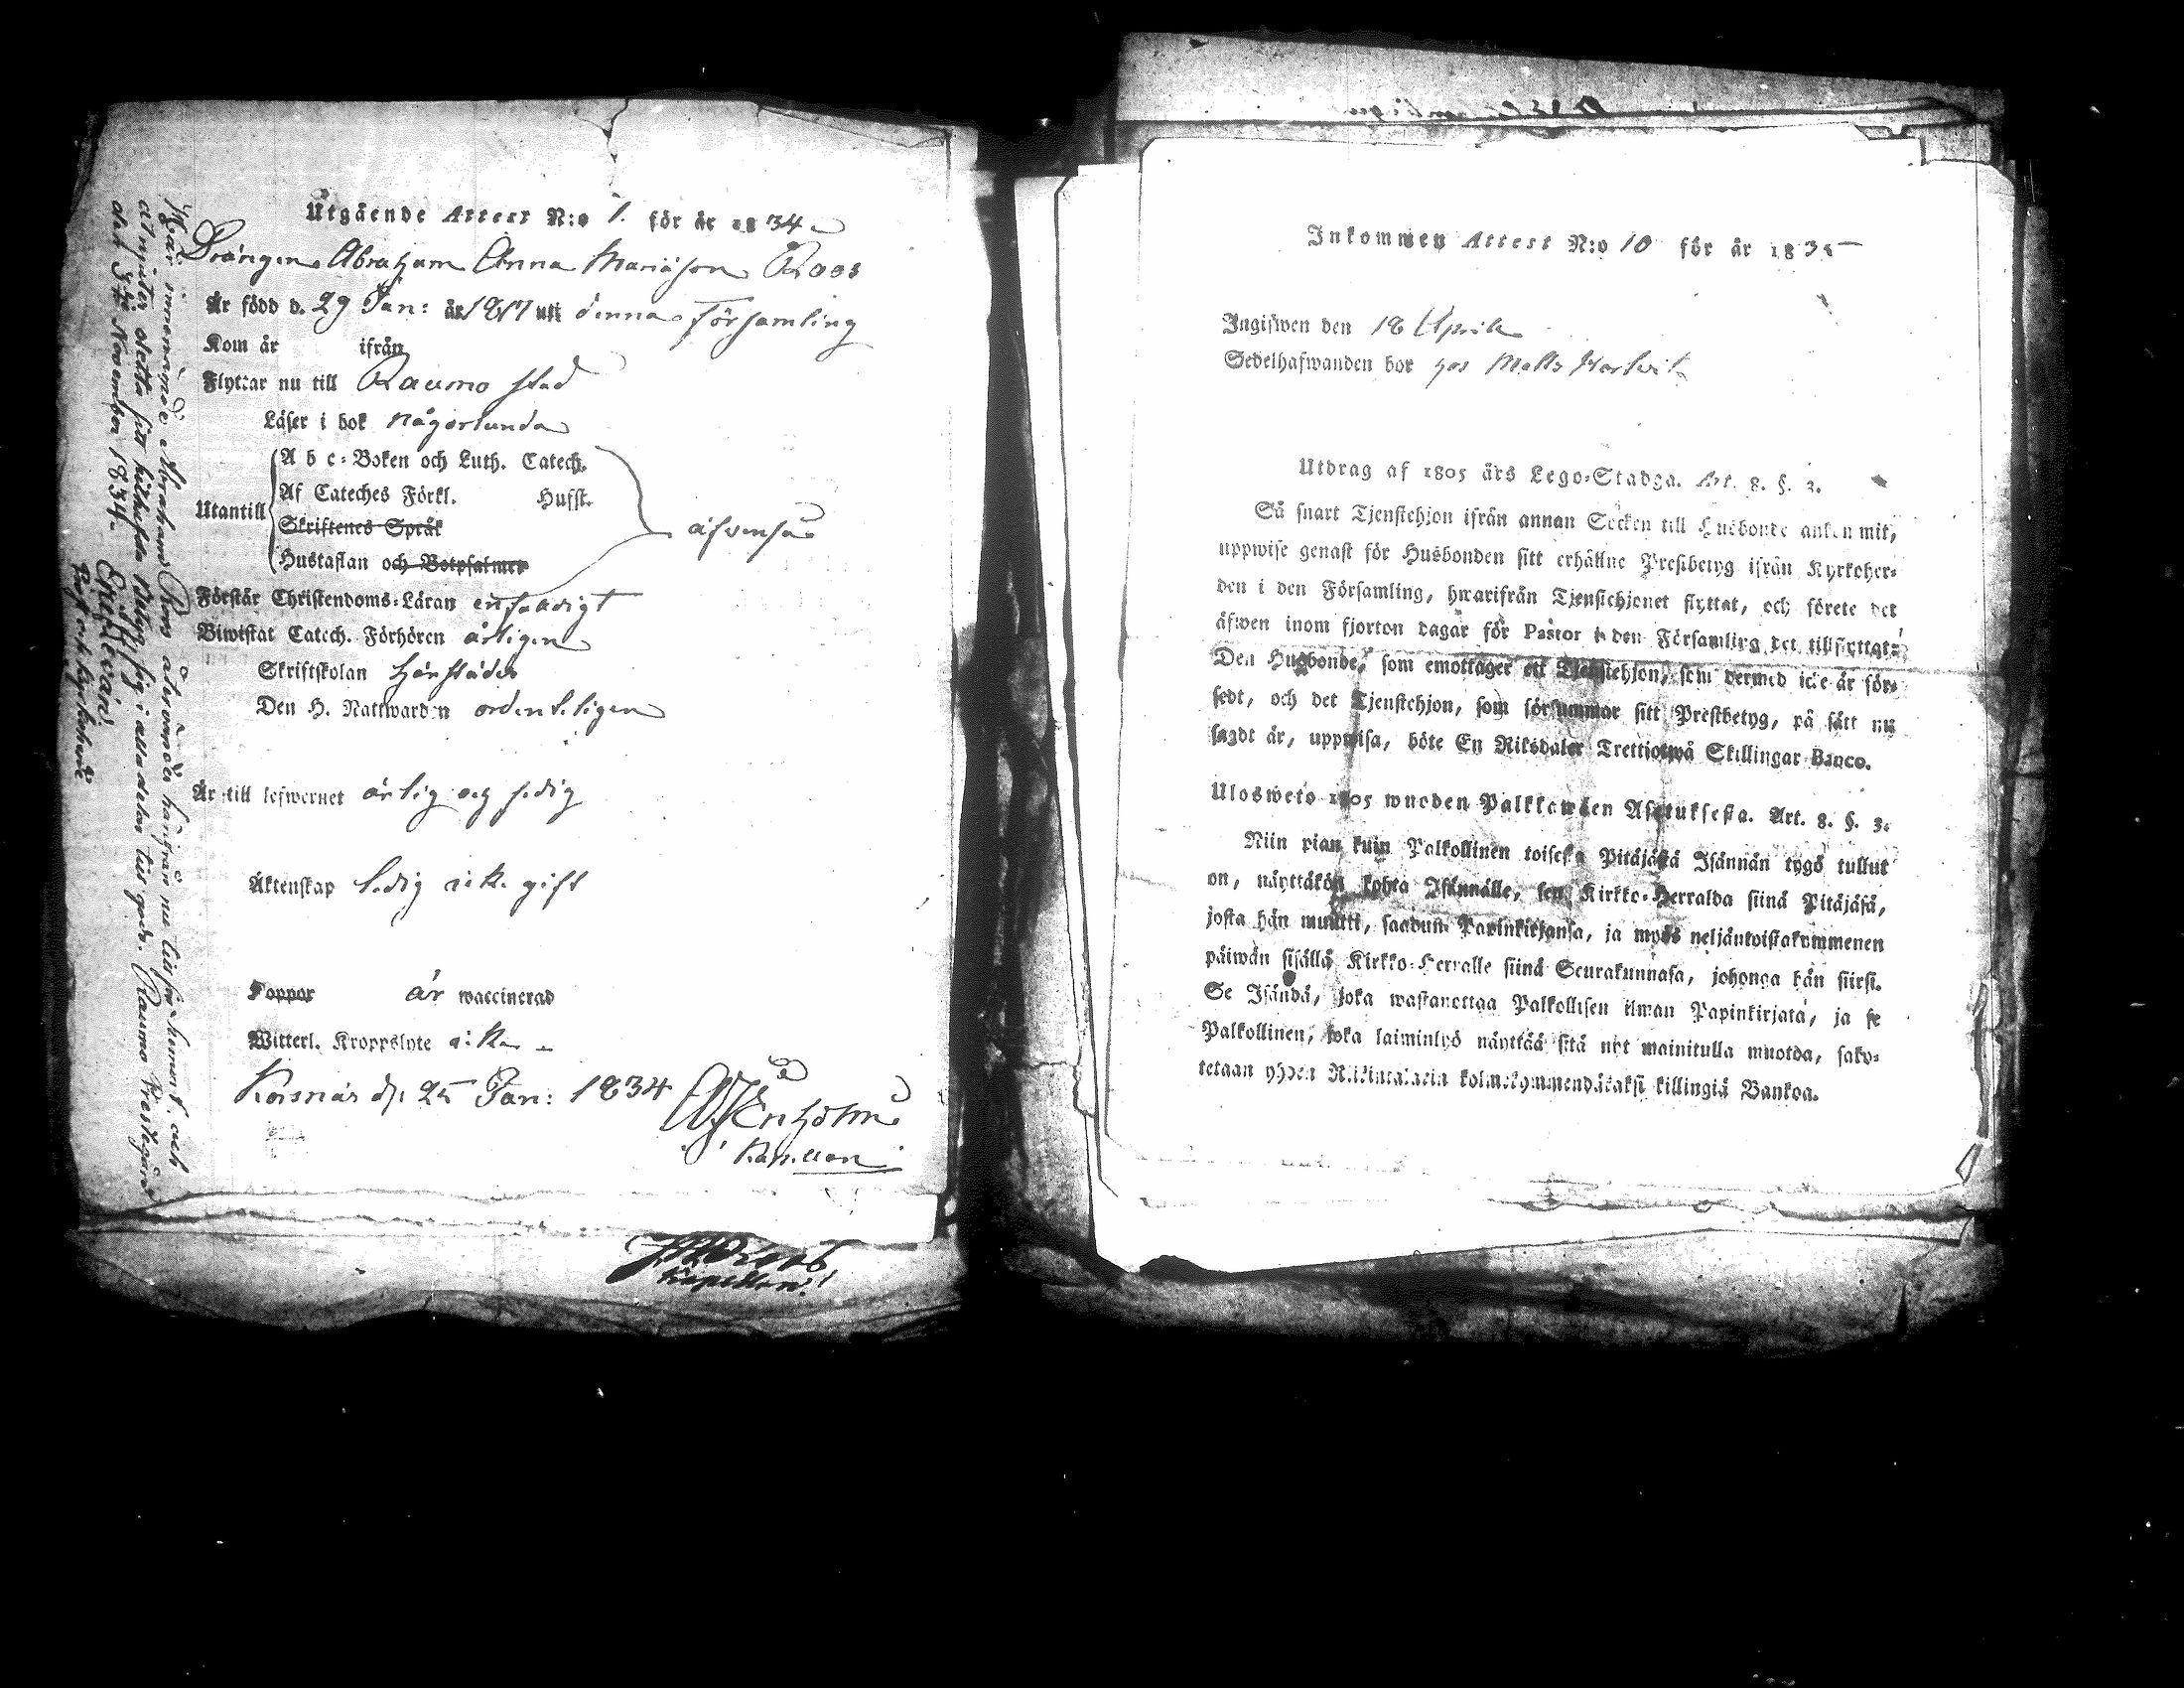 Utgående Attest N:o 1. för år 1834
Drängen Abraham Anna Mariæson Roos
Är född d. 29 Jan: år 1817 uti denna Församling
Kom år ifrån
Flyttar nu till Raumo stad
Läser i bok någorlunda
Utantill
A b c-Boken och Luth. Catech.
Af Cateches Förkl. Hufst.
Skriftenes Språk
Hustaflan och Botpsalmer
äfvenså
Förstår Christendoms-Läran enfaldigt
Biwistat Catech. Förhören årligen
Skriftskolan härstädes
Den H. Nattwarden ordentligen
Är till lefwernet ärlig och sedig
Äktenskap ledig icke gift
Koppor är waccinerad
Witterl. Kroppslyte icke
Korsnäs d. 25 Jan: 1834
Kapellan
Kapellan.
innemämnde Abraham Roos återvände härifrån nu och
atnjuter detta sitt Betyg sig i alla delar till godo. Raumo Prestegård
det 3dje November 1834.
Past. och Kyrkoherde
Inkommen Attest N:o 10 för år 1835
Ingifwen den 18 April
Sedelhafwanden bor hos Matts
Utdrag af 1805 års Lego-Stadga. Art. 8. §. 3.
Så snart Tjenstehjon ifrån annan Socken till Husbonde ankommit,
uppwise genast för Husbonden sitt erhållne Prestbetyg ifrån Kyrkoher-
den i den Församling, hwarifrån Tjenstehjonet flyttat, och förete det
äfwen inom fjorton dagar för Pastor i den Församling det tillflyttat:
Den Husbonde, som emottager ett Tjenstehjon, som dermed icke är för-
sedt, och det Tjenstehjon, som försummar sitt Prestbetyg, på sätt nu
sagdt är, uppwisa, böte En Riksdaler Trettiotwå Skillingar Banco.
Ulosweto 1805 wuoden Palkkawäen Asetuksesta. Art. 8. §. 3.
Niin pian kuin Palkollinen toisesta Pitäjästä Isännän tygö tullut
on, näyttäkön kohta Isännälle, sen Kirkko-Herralda siinä Pitäjäsä,
josta hän muutti, saadun Papinkirjansa, ja myös neljäntoistakymmenen
päiwän sisällä Kirkko-Herralle siinä Seurakunnasa, johonga hän siirsi.
Se Isändä, joka wastanottaa Palkollisen ilman Papinkirjata, ja se
Palkollinen, joka laiminlyö näyttää sitä nyt mainitulla muotoa, sako-
tetaan yhden Riikintalarin kolmekymmendäkaksi killingiä Bankoa.